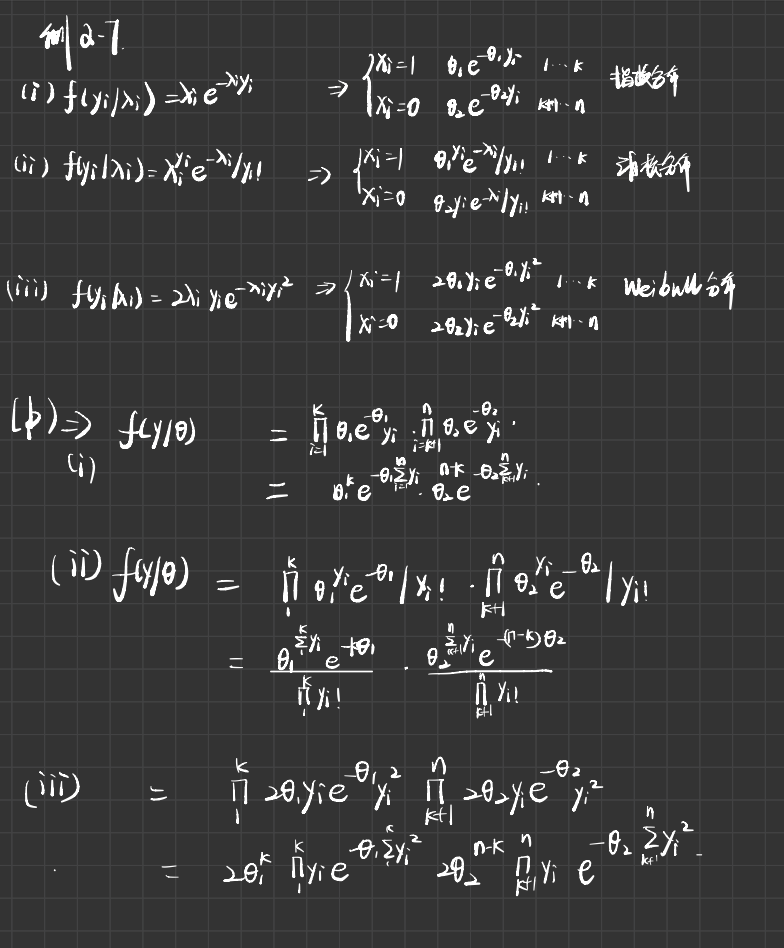 例 2-7.
(i) f(yi|λi) = λi e^{-λiyi} ⇒ { xi=1 θ₁e^{-θ₁yi} 1…k 指数分布
xi=0 θ₂e^{-θ₂yi} k+1…n
(ii) f(yi|λi) = λi^{yi} e^{-λi}/yi! ⇒ { xi=1 θ₁^{yi}e^{-λi}/yi! 1…k 泊松分布
xi=0 θ₂^{yi}e^{-λi}/yi! k+1…n
(iii) f(yi|λi) = 2λi yi e^{-λiyi²} ⇒ { xi=1 2θ₁yi e^{-θ₁yi²} 1…k Weibull 分布
xi=0 2θ₂yi e^{-θ₂yi²} k+1…n
(b) ⇒ f(y|θ) = ∏_{i=1}^{k} θ₁e^{-θ₁yi} · ∏_{i=k+1}^{n} θ₂e^{-θ₂yi}.
(i) = θ₁^k e^{-θ₁∑_{i=1}^{n}yi} · θ₂^{n-k} e^{-θ₂∑_{k+1}^{n}yi}.
(ii) f(y|θ) = ∏_{1}^{k} θ₁^{yi}e^{-θ₁}/yi! · ∏_{k+1}^{n} θ₂^{yi}e^{-θ₂}/yi!
= θ₁^{∑_{1}^{k}yi} e^{-kθ₁} / ∏_{1}^{k}yi! · θ₂^{∑_{k+1}^{n}yi} e^{-(n-k)θ₂} / ∏_{k+1}^{n}yi!
(iii) = ∏_{1}^{k} 2θ₁yi e^{-θ₁yi²} ∏_{k+1}^{n} 2θ₂yi e^{-θ₂yi²}
= 2θ₁^k ∏_{1}^{k}yi e^{-θ₁∑_{1}^{k}yi²} 2θ₂^{n-k} ∏_{k+1}^{n}yi e^{-θ₂∑_{k+1}^{n}yi²}.